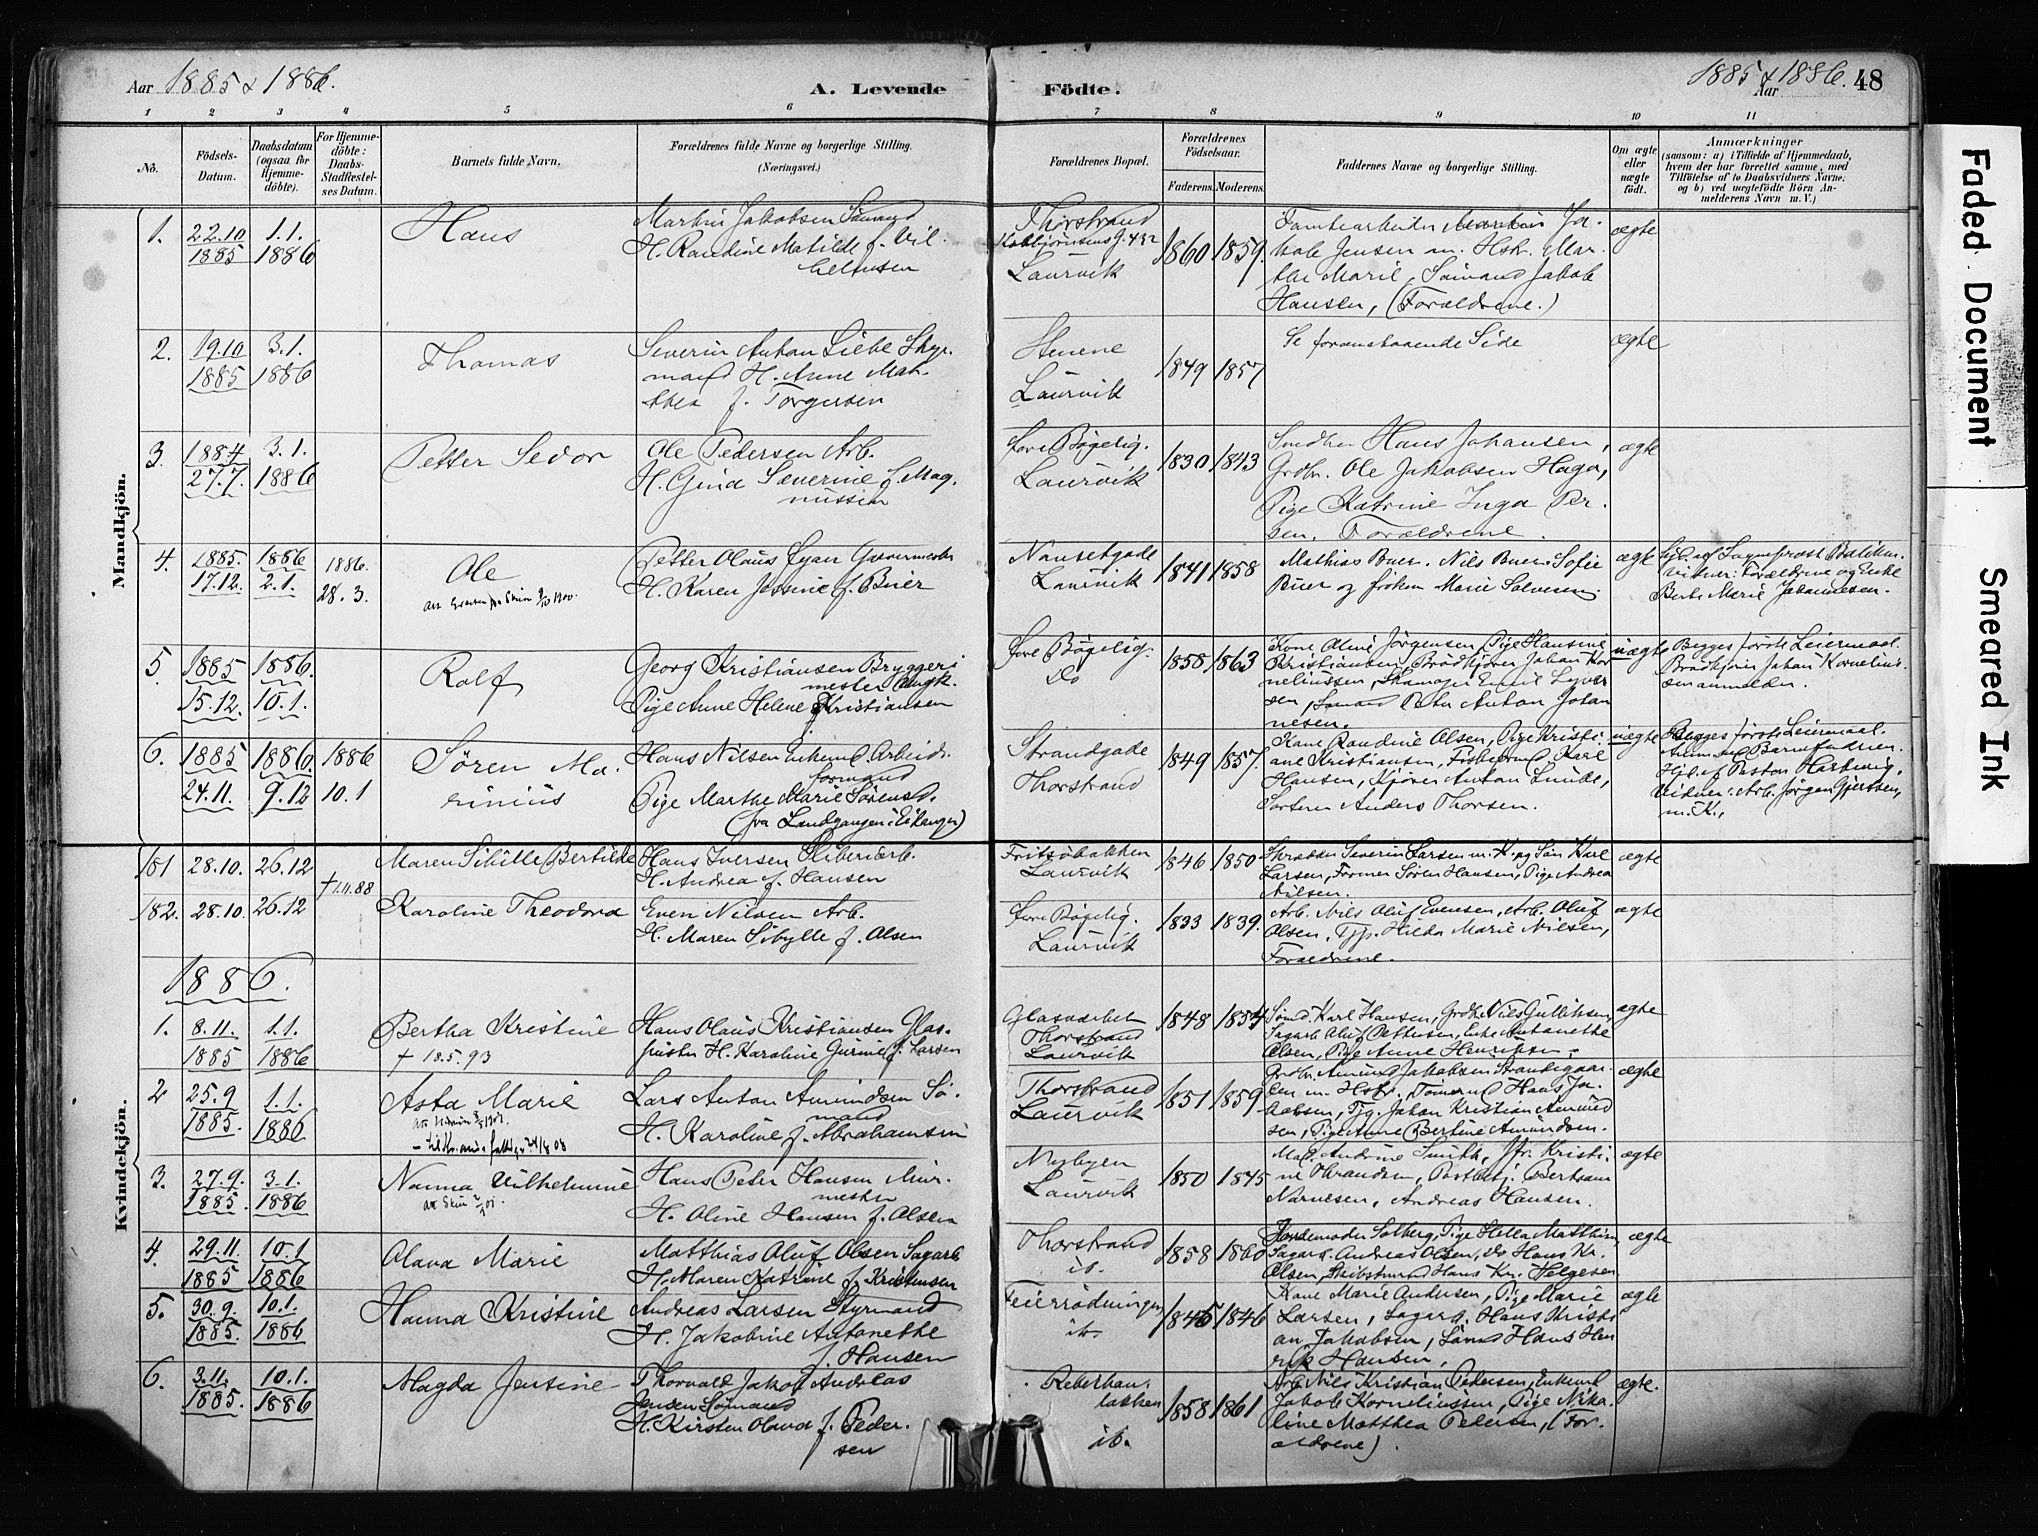 Aar 1885 & 1886.
A. Levende Födte.
1885 & 1886.
Aar
48
1 2 3 4 5 6 7 8 9 10 11
No.
Födsels-Datum.
Daabsdatum (ogsaa for Hjemme-döbte).
For Hjemme-döbte: Daabs-Stadfæstel-ses Datum.
Barnets fulde Navn.
Forældrenes fulde Navne og borgerlige Stilling.
(Næringsvei.)
Forældrenes Bopæl.
Forældrenes Födselsaar.
Faderens. Moderens.
Faddernes Navne og borgerlige Stilling.
Om ægte eller uægte født.
Anmærkninger
(saasom: a) i Tilfælde af Hjemmedaab, hvem der har forrettet samme, med Tilföielse af to Daabsvidners Navne, og b) ved uægtefödte Börn An-melderens Navn m. V.)
Mandkjön.
1.
22.10 1885
1.1. 1886
Hans
Martin Jakobsen Sømand
H. Randine Matilde f. Vil-
helmsen
Thorstrand
Laurvik
1860 1859.
Jensen m. Hstr. Mar-
the Marie, Sømand Jakob
Hansen, (Forældrene.)
ægte
2.
19.10 1885
3.1. 1886
Thomas
Severin Anton Liebe Styr-
mand H. Anne Mat-
thea f. Torgersen
Stenene
Laurvik
1849 1857
Se foranstaaende Side
ægte
3.
1884 27.7.
3.1. 1886
Petter Sedor
Ole Pedersen Arb.
H. Gina Severine f. Mag-
nussen
Laurvik
1830 1843
Hans Johansen,
Grdbr. Ole Jakobsen Haga,
Pige Katrine Inga Per-
sen, Forældrene.
ægte
4.
1885. 17.12.
1886 2.1.
1886. 28.3.
Ole
Petter Olaus Eyan
H. Karen Jessine f. Buer
Nansetgade
Laurvik
1841 1858
Mathias Buer, Nils Buer, Sofie
Buer og frøken Marie Salvesen.
ægte
Vidner: Forældrene og Enke
Berte Marie Johannesen.
5.
1885 15.12.
1886. 10.1.
Rolf
Georg Kristiansen Bryggeri
mester
Pige Anne Helene Kristiansen
Do
1858 1863
Kone Oline Jörgensen, Pige Hansine
Kristiansen, Brødkjører Johan Kor
neliussen, Skomager Emil Syver
sen, Sømand Peter Anton Johan
nesen.
uægte
Begges første Leiermaal.
Brødkjører Johan Kornelius-
sen anmelder.
6.
1885 24.11.
1886. 9.12
1886 10.1
Søren Ma-
rinius
Hans Nilsen Enkemd Arbeids-
formand
Pige Marthe Marie Sørensd.
(fra Landgangen i Eidanger)
Strandgade
Thorstrand
1849 1857.
Kone Randine Olsen, Pige Kristi-
ane Kristiansen, Karl
Hansen, Kjører Anton Linde,
Anders Thorsen.
uægte
Begges første Leiermaal.
Anmeld Barnefaderen.
Hjd. af Pastor
Vidner: Arb. Jørgen Gjertsen,
m. K.
Kvindekjön.
181
28.10.
26.12
Maren Sibille Bertilde
Hans Iversen Sliberiarb.
H. Andrea f. Hansen
Fritsøbakken
Laurvik
1846 1850
Skrædder Severin Larsen m. H. og Søn Karl
Larsen, Former Søren Hansen, Pige Andrea
Nilsen.
ægte
182.
28.10.
26.12
† 1.11.88
Karoline Theodora
Even Nilsen Arb.
H. Maren Sibylle f. Olsen
Laurvik
1833 1839.
Arb. Nils Oluf Evensen, Arb. Oluf
Olsen, Tjp. Hilda Marie Nilsen,
Forældrene.
ægte
1886.
1.
8.11. 1885
1.1. 1886
Bertha Kristine
† 18.5.93
Hans Olaus Kristiansen Glas-
puster H. Karoline Gurine f. Larsen
Glasværket
Thorstrand
Laurvik
1848 1854
Sømd. Karl Hansen, Grdbr. Nils Gulliksen,
Sagarb. Oluf Pettersen, Enke Antonette
Olsen, Pige Anne Henriksen.
ægte
2
25.9 1885.
1.1. 1886
Asta Marie
Lars Anton Amundsen Sø-
mand
H. Karoline f. Abrahamsen
Thorstrand
Laurvik
1851 1859
Grdbr. Amund Jakobsen
Hans Ja-
cobsen, Tjg. Johan Kristian Amund
sen, Pige Anne Bertine Amundsen.
ægte
3.
27.9. 1885.
3.1. 1886
Nanna Vilhelmine
Hans Peter Hansen Mur-
mester
H. Oline Hansen f. Olsen
Nybyen
Laurvik
1850 1845
Mad. Andrine Smith, Jfr. Kristi-
ne Bertram
Andreas Hansen.
ægte
4.
29.11. 1885
10.1 1886
Olava Marie
Matthias Oluf Olsen Sagarb.
H. Maren Katrine f. Kristensen
Thorstrand
ib.
1858 1860
Jordemoder Solberg, Pige Hella
Sagarb. Andreas Olsen, do Hans Kr.
Olsen, Skibstmd Hans Kr. Helgesen
ægte
5.
30.9. 1885.
10.1. 1886
Hanna Kristine
Andreas Larsen Styrmand
H. Jakobine Antonette
f. Hansen
Feierrødningen
ib.
1845 1846
Kone Marie Andersen, Pige Marie
Larsen, Sagarb. Hans Kristi
an Jakobsen, Sømd Hans Hen
rik Hansen.
ægte
6.
3.11. 1885.
10.1. 1886
Magda Jensine
Thorvald Jakob Andreas
Jensen Sømand
H. Kirsten Olava f. Peder-
sen
Reberban-
bakken
ib.
1858 1861
Arb. Nils Kristian Pedersen, Enkemd
Jakob Korneliussen, Pige Nika-
line Matthea Pedersen, (For-
ældrene).
ægte.
Faded Document
Smeared Ink